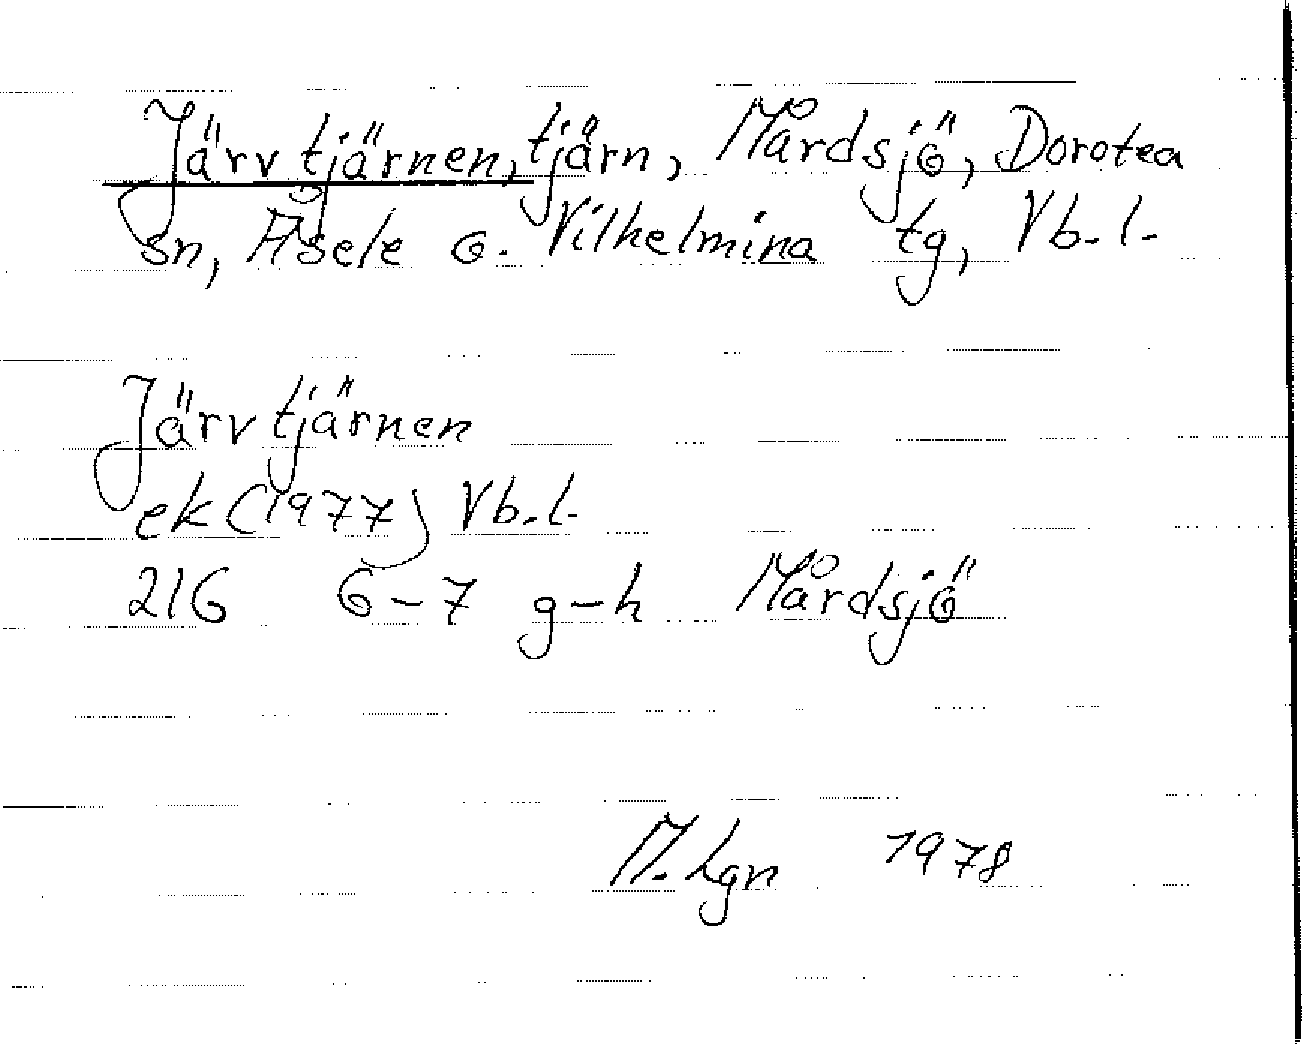 Järvtjärnen, tjärn, Mårdsjö, Dorotea
sn, Åsele o. Vilhelmina tg, Vb. l.
Järvtjärnen
ek (1977) Vb. l.
21G 6-7 g-h Mårdsjö
M. Lgn 1978